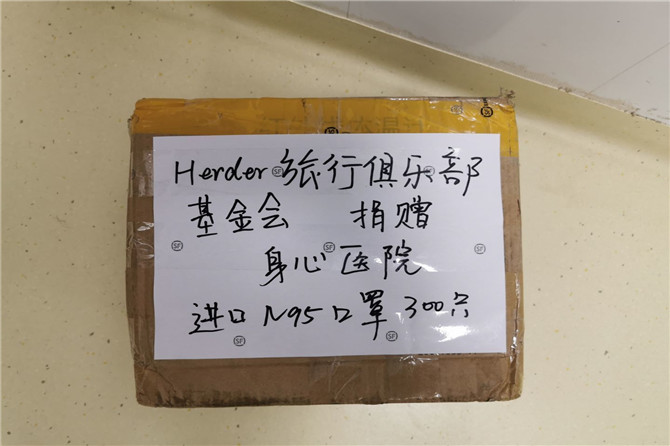 Herder旅行俱乐部
基金会 捐赠
身心医院
进口N95口罩300只